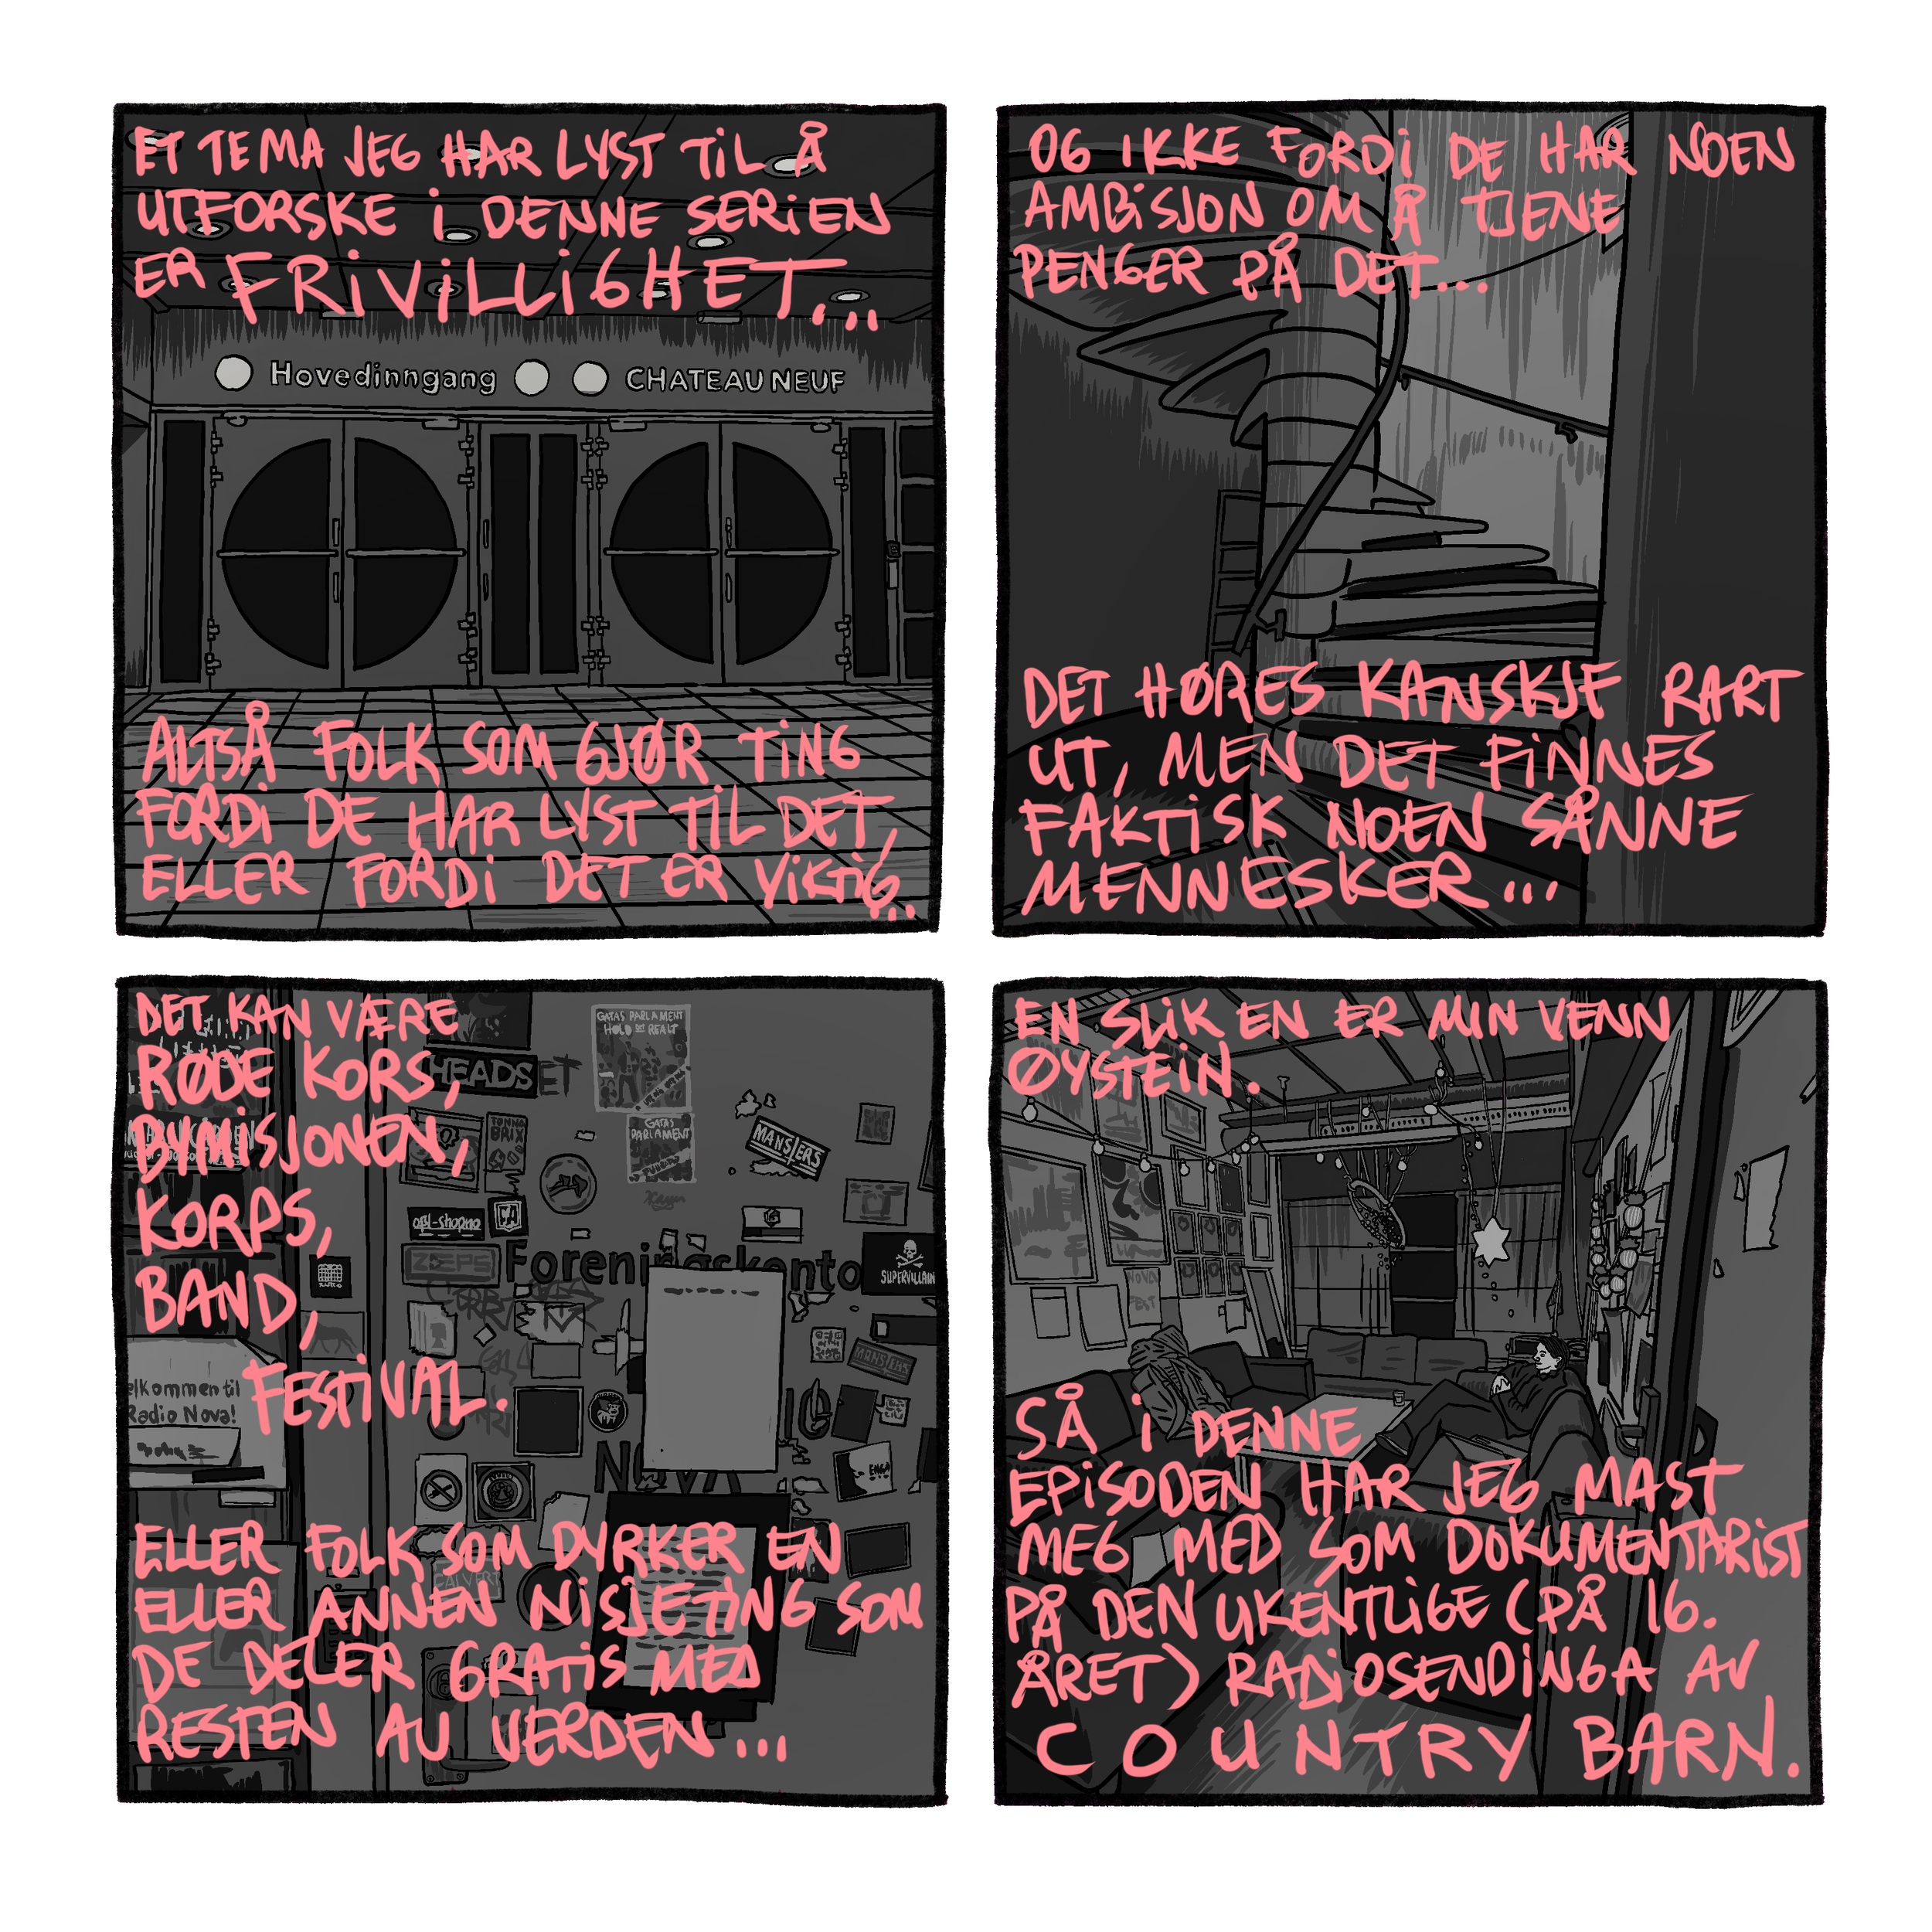 ET TEMA JEG HAR LYST TIL Å
UTFORSKE I DENNE SERIEN
ER FRIVILLIGHET...
Hovedinngang
CHATEAU NEUF
ALTSÅ FOLK SOM GJØR TING
FORDI DE HAR LYST TIL DET,
ELLER FORDI DET ER VIKTIG...
OG IKKE FORDI DE HAR NOEN
AMBISJON OM Å TJENE
PENGER PÅ DET...
DET HØRES KANSKJE RART
UT, MEN DET FINNES
FAKTISK NOEN SÅNNE
MENNESKER...
DET KAN VÆRE
RØDE KORS,
BYMISJONEN,
KORPS,
BAND,
FESTIVAL.
GATAS PARLAMENT
HOLD DET REALT
HEADSET
TONNA
BRIX
GATAS
PARLAMENT
MANSTERS
ZEPS
Foreningskonto
SUPERVILLAIN
MANSTERS
elkommen til
Radio Nova!
NOVA
CALVERT
ELLER FOLK SOM DYRKER EN
ELLER ANNEN NISJETING SOM
DE DELER GRATIS MED
RESTEN AV VERDEN...
EN SLIK EN ER MIN VENN
ØYSTEIN.
NOVA
FEST
SÅ I DENNE
EPISODEN HAR JEG MAST
MEG MED SOM DOKUMENTARIST
PÅ DEN UKENTLIGE (PÅ 16.
ÅRET) RADIOSENDINGA AV
COUNTRY BARN.